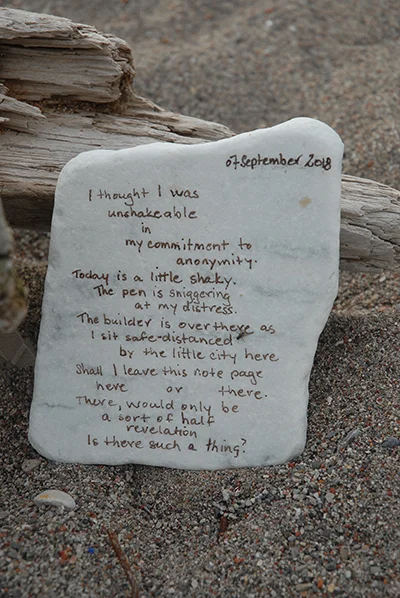 07 September 2018
I thought I was
unshakeable
in
my commitment to
anonymity.
Today is a little shaky.
The pen is sniggering
at my distress.
The builder is over there as
I sit safe-distanced
by the little city here
Shall I leave this note page
here or there.
There, would only be
a sort of half
revelation
Is there such a thing?